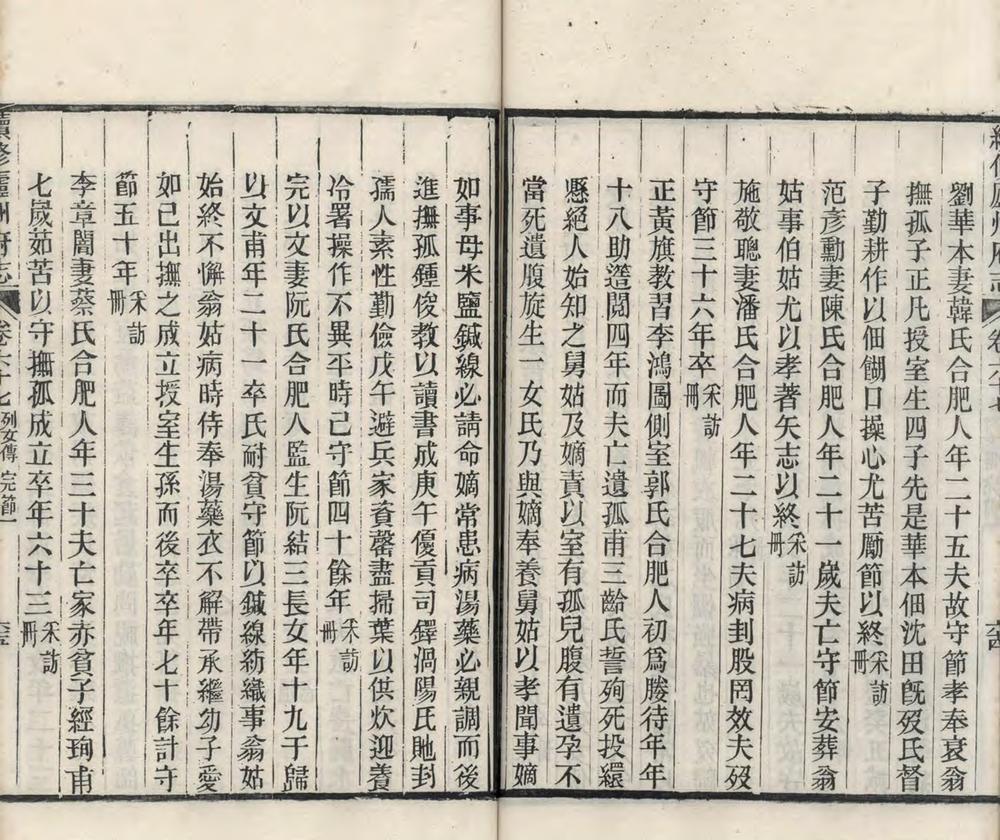 劉華本妻韓氏合肥人年二十五夫故守節孝奉衰翁
撫孤子正凡授室生四子先是華本佃沈田旣歿氏督
子勤耕作以佃餬口操心尤苦勵節以終采訪冊
范彦勳妻陳氏合肥人年二十一歲夫亡守節安葬翁
姑事伯姑尤以孝著矢志以終采訪冊
施敬聰妻潘氏合肥人年二十七夫病刲股罔效夫歿
守節三十六年卒采訪冊
正黃旗教習李鴻圖側室郭氏合肥人初爲媵待年年
十八助簉閱四年而夫亡遺孤甫三齡氏誓殉死投繯
懸絕人始知之舅姑及嫡責以室有孤兒腹有遺孕不
當死遺腹旋生一女氏乃與嫡奉養舅姑以孝聞事嫡
如事母米鹽鍼線必請命嫡常患病湯藥必親調而後
進撫孤鍾俊教以讀書成庚午優貢司鐸渦陽氏貤封
孺人素性勤儉戊午避兵家賫罄盡掃葉以供炊迎養
冷署操作不異平時已守節四十餘年采訪冊
完以文妻阮氏合肥人監生阮結三長女年十九于歸
以文甫年二十一卒氏耐貧守節以鍼線紡織事翁姑
始終不懈翁姑病時侍奉湯藥衣不解帶承繼幼子愛
如已出撫之成立授室生孫而後卒卒年七十餘計守
節五十年采訪冊
李章闇妻蔡氏合肥人年三十夫亡家赤貧子經珣甫
七歲茹苦以守撫孤成立卒年六十三采訪冊
續修廬州府志 卷六十七 列女傳 完節一